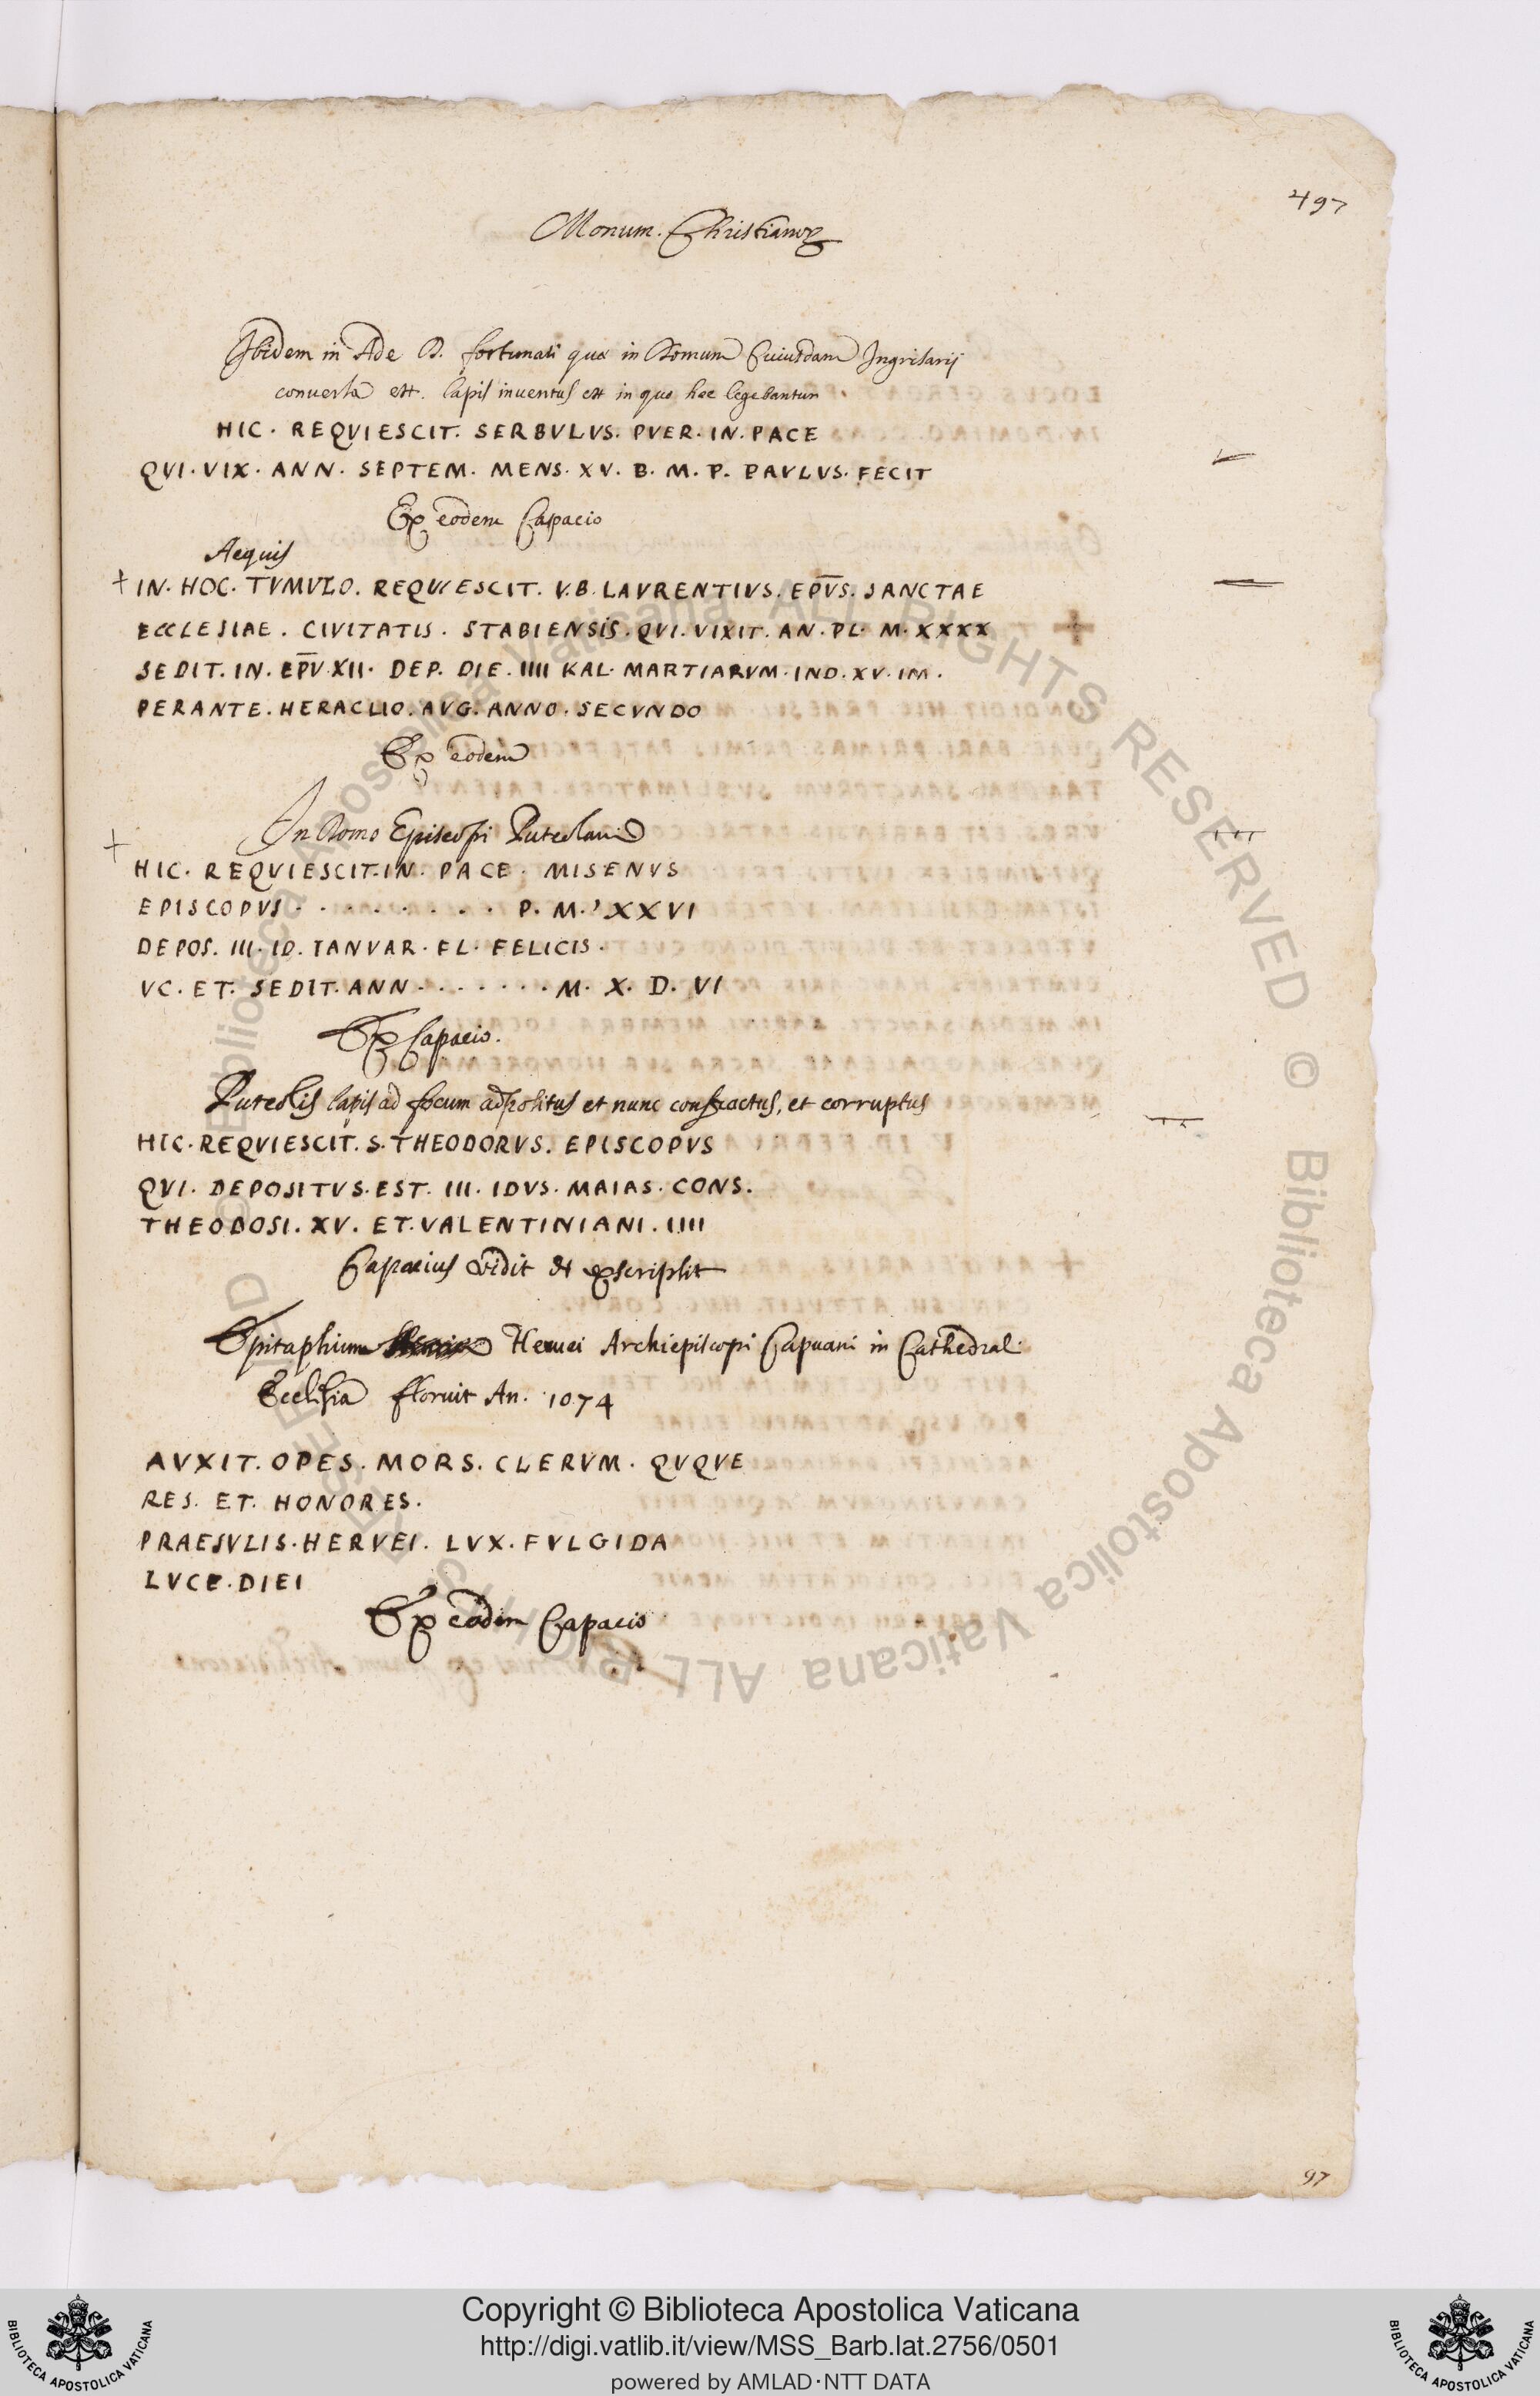 497
Monum. Christianoꝝ
Ibidem in Æde D. fortunati quæ in Domum Cuiusdam Ingrisarij
conuersa est. lapis inuentus est in quo hæc legebantur
HIC. REQVIESCIT. SERBVLVS. PVER. IN. PACE
QVI. VIX. ANN. SEPTEM. MENS. XV. B. M. P. PAVLVS. FECIT
Ex eodem Capacio
Aequis
+ IN. HOC. TVMVLO. REQVIESCIT. V.B. LAVRENTIVS. EPVS. SANCTAE
ECCLESIAE. CIVITATIS. STABIENSIS. QVI. VIXIT. AN. PL. M. XXXX
SEDIT. IN. EPV. XII. DEP. DIE. IIII KAL. MARTIARVM. IND. XV. IM.
PERANTE. HERACLIO. AVG. ANNO. SECVNDO
Ex eodem
+ In Domo Episcopi Puteolani
HIC. REQVIESCIT. IN. PACE. MISENVS
EPISCOPVS . . . . . . . . P. M. XXVI
DEPOS. III. ID. IANVAR. FL. FELICIS.
VC. ET. SEDIT. ANN . . . . . . . M. X. D. VI
Ex Capacio.
Puteolis lapis ad focum adpositus et nunc confractus, et corruptus
HIC. REQVIESCIT. S. THEODORVS. EPISCOPVS
QVI. DEPOSITVS. EST. III. IDVS. MAIAS. CONS.
THEODOSI. XV. ET. VALENTINIANI. IIII
Capacius vidit et exscripsit
Epitaphium Heruei Archiepiscopi Capuani in Cathedral:
Ecclesia floruit An. 1074
AVXIT. OPES. MORS. CLERVM. QVQVE
RES. ET. HONORES.
PRAESVLIS. HERVEI. LVX. FVLGIDA
LVCE. DIEI
Ex eodem Capacio
97
© Biblioteca Apostolica Vaticana ALL RIGHTS RESERVED © Biblioteca Apostolica Vaticana ALL RIGHTS RESERVED
BIBLIOTECA APOSTOLICA VATICANA
Copyright © Biblioteca Apostolica Vaticana
http://digi.vatlib.it/view/MSS_Barb.lat.2756/0501
powered by AMLAD·NTT DATA
BIBLIOTECA APOSTOLICA VATICANA